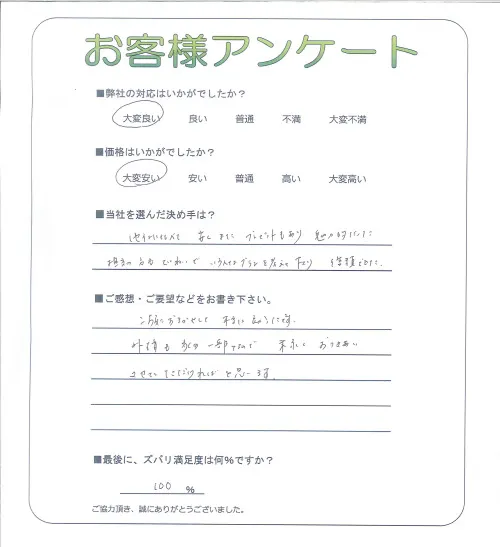 お客様アンケート
■弊社の対応はいかがでしたか？
大変良い 良い 普通 不満 大変不満
■価格はいかがでしたか？
大変安い 安い 普通 高い 大変高い
■当社を選んだ決め手は？
他社に比べて 安く また プレゼントもあり 魅力的だった
担当の方も ていねいで いろんなプランを考えて下さり 信頼できた.
■ご感想・ご要望などをお書き下さい。
お願いして 本当に 良かったです.
外構も 家の一部なので 末永く おつきあい
させていただければ と思います.
■最後に、ズバリ満足度は何%ですか？
100 %
ご協力頂き、誠にありがとうございました。